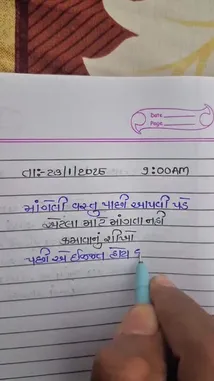 Date
Page
તા:-23/1/2025 9:00AM
માંગેલી વસ્તુ પાછી આપવી પડે
એટલા માટે માંગતા નહી
કમાવાનું શીખો
પછી એ ઈજ્જત હોય